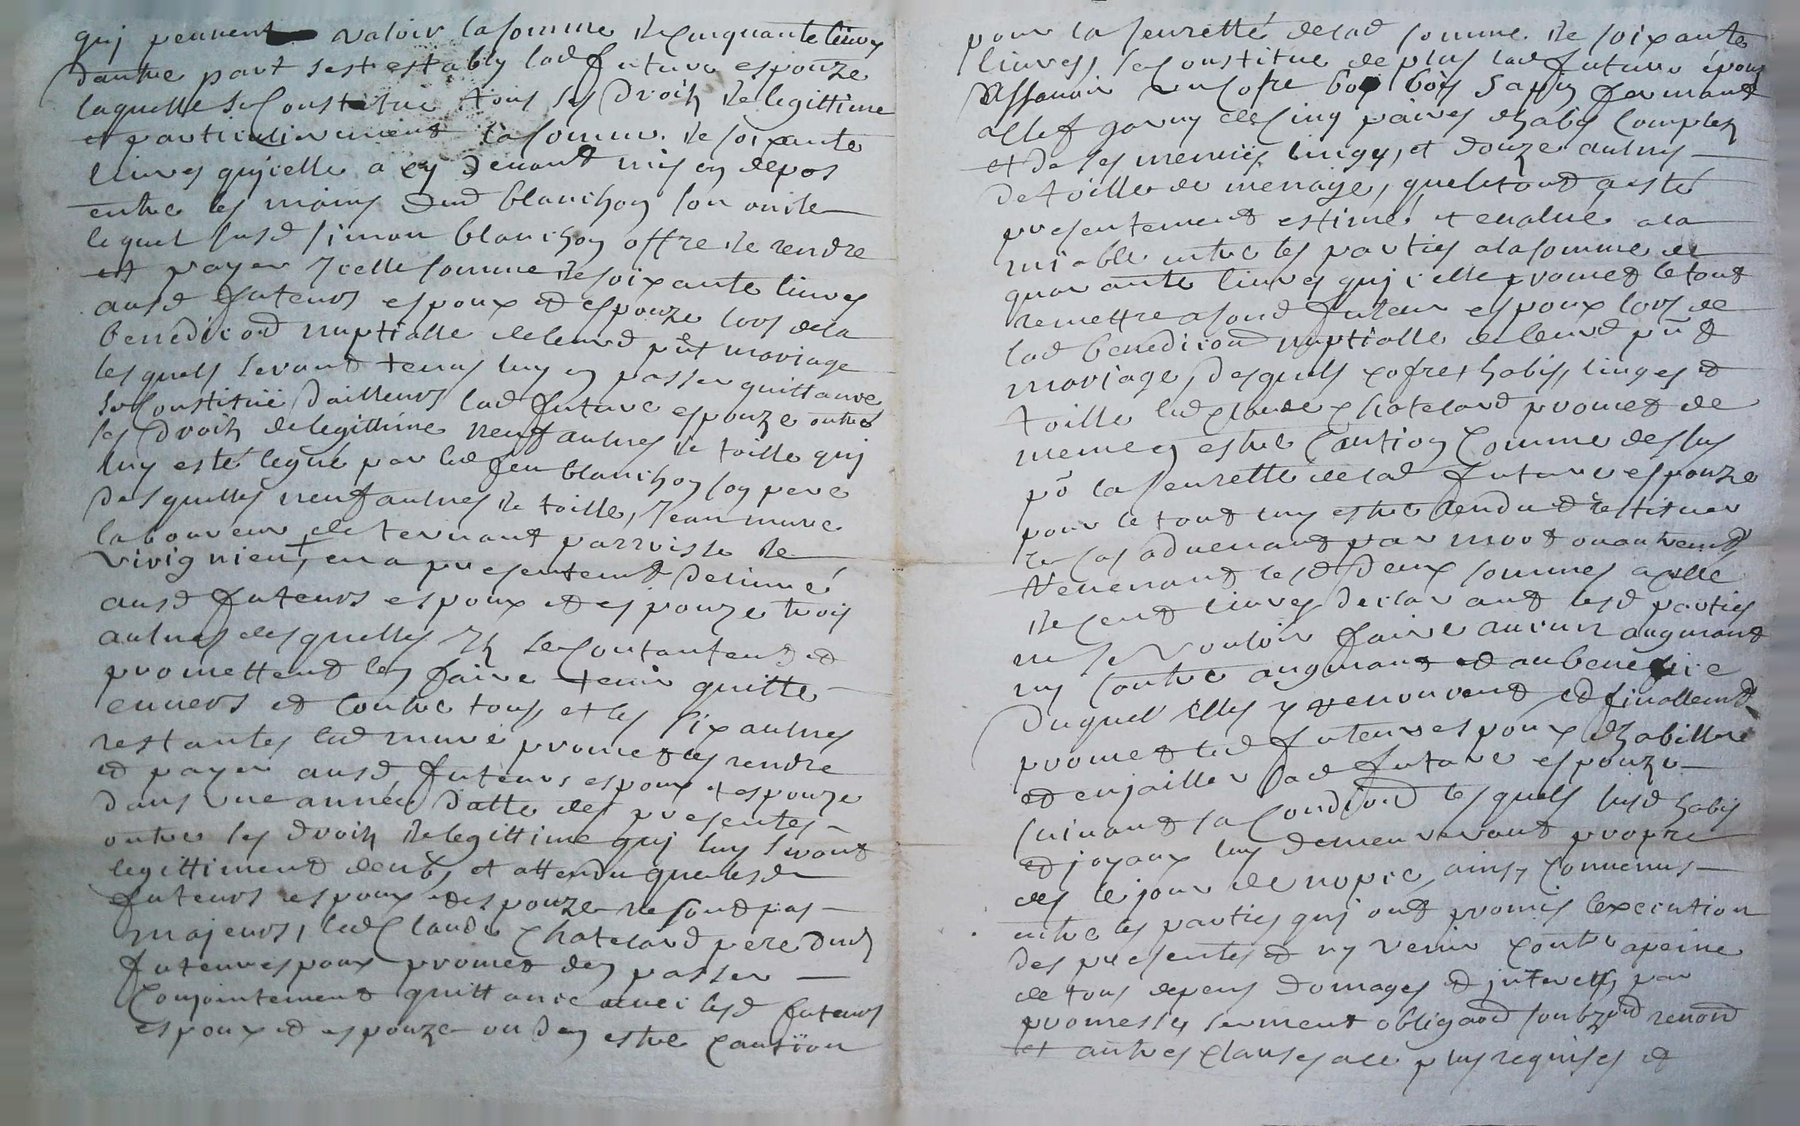 quj peuvent valoir la somme de Cinquante livres
dautre part sest establÿ lad future espouze
laquelle se Constitue tous ses droitz de legittime
et particulierement la somme de soixante
livres qujcelle a cy devant mis en depos
entre les mains dud blanchon son oncle
lequel susd simon blanchon offre de rendre
et payer Jcelle somme de soixante livres
ausd futeurs espoux et espouze lors de la
benediction nuptialle de leurd pnt mariage
lesquels seront tenus luy en passer quittance
se Constitue dailleurs lad future espouze outre
ses droitz de legittime neuf aulnes de toille quj
luy esté legué par led feu blanchon son pere
desquelles neuf aulnes de toille, Jean mure
laboureur de ternant parroisse de
vivignieu, en a presentement delivré
ausd futeurs espoux et espouze trois
aulnes desquelles Jlz se Contantent et
promettent len faire tenir quitte
envers et Contre tous, et les six aulnes
restantes led mure promet les rendre
et payer ausd futeurs espoux et espouze
dans une année datte des presentes
outre les droitz de legittime quj luy seront
legittiment deub, et attendu que lesd
futeurs espoux et espouze ne sont pas
majeurs, led Claude Chatelard pere dud
futeur espoux promet den passer
Conjointement quittance avec lesd futeurs
espoux et espouze ou den estre Caution
pour la seuretté de lad somme de soixante
livres, se Constitue de plus lad future épouze
assavoir un Cofre bois Sapin fermant
a Clef garny de Cinq paires dhabis Completz
et de ses menus linges, et douze aulnes
de toille de menage, quel tout a esté
presentement estimé et evalué a la
miable entre les parties a la somme de
quarante livres qujcelle promet le tout
remettre a sond futeur espoux lors de
lad benediction nuptialle de leurd pnt
mariage, desquels Cofre, habis, linges et
toille led Claude Chatelard promet de
meme en estre Caution Comme dessus
po la seuretté de lad future espouze
pour le tout luy estre rendu et restituer
le Cas advenant par mort ou autrement
revenant lesd deux sommes a Celle
de Cent livres declarant lesd parties
ne se vouloir faire aucun augmant
ny Contre augmant et au benefice
duquel elles y renoncent et finallement
promet led futeur espoux dhabiller
et enjailler sad future espouze
suivant sa Condition lesquels susd habis
et joyaux luy demeureront propre
des le jour de nopce, ainsy Convenus
entre les parties quj ont promis lexecution
des presentes et ny venir Contre a peine
de tous depens domages et jnterests, par
promesses serment obligaon soubzon renon
et autres Clauses a ce plus requises et